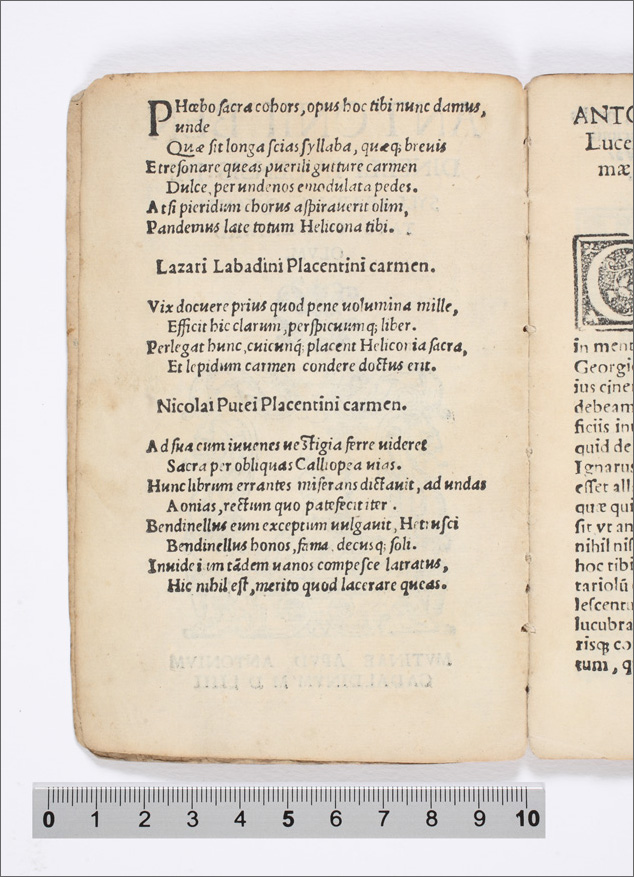 PHœbo sacra cohors, opus hoc tibi nunc damus,
unde
Quæ sit longa scias syllaba, quæq; breuis
Et resonare queas puerili gutture carmen
Dulce, per undenos emodulata pedes.
At si pieridum chorus aspirauerit olim,
Pandemus late totum Helicona tibi.
Lazari Labadini Placentini carmen.
Vix docuere prius quod pene uolumina mille,
Efficit hic clarum, perspicuumq; liber.
Perlegat hunc, cuicunq; placent Heliconia sacra,
Et lepidum carmen condere doctus erit.
Nicolai Putei Placentini carmen.
Ad sua cum iuuenes uestigia ferre uideret
Sacra per obliquas Calliopea uias.
Hunc librum errantes miserans dictauit, ad undas
Aonias, rectum quo patefecit iter.
Bendinellus eum exceptum uulgauit, Hetrusci
Bendinellus honos, fama, decusq; soli.
Inuide iam tādem uanos compesce latratus,
Hic nihil est, merito quod lacerare queas.
MVTINAE APVD ANTONIVM
GADALDINVM M D LIII
ANTO
Luce
mæ
C
in ment
Georgi
ius cine
debeam
ficiis in
quid de
Ignarus
esset all
quæ qui
sit vt an
nihil nis
hoc tibi
tariolū
lescent
lucubra
risq;
tum, q
0 1 2 3 4 5 6 7 8 9 10